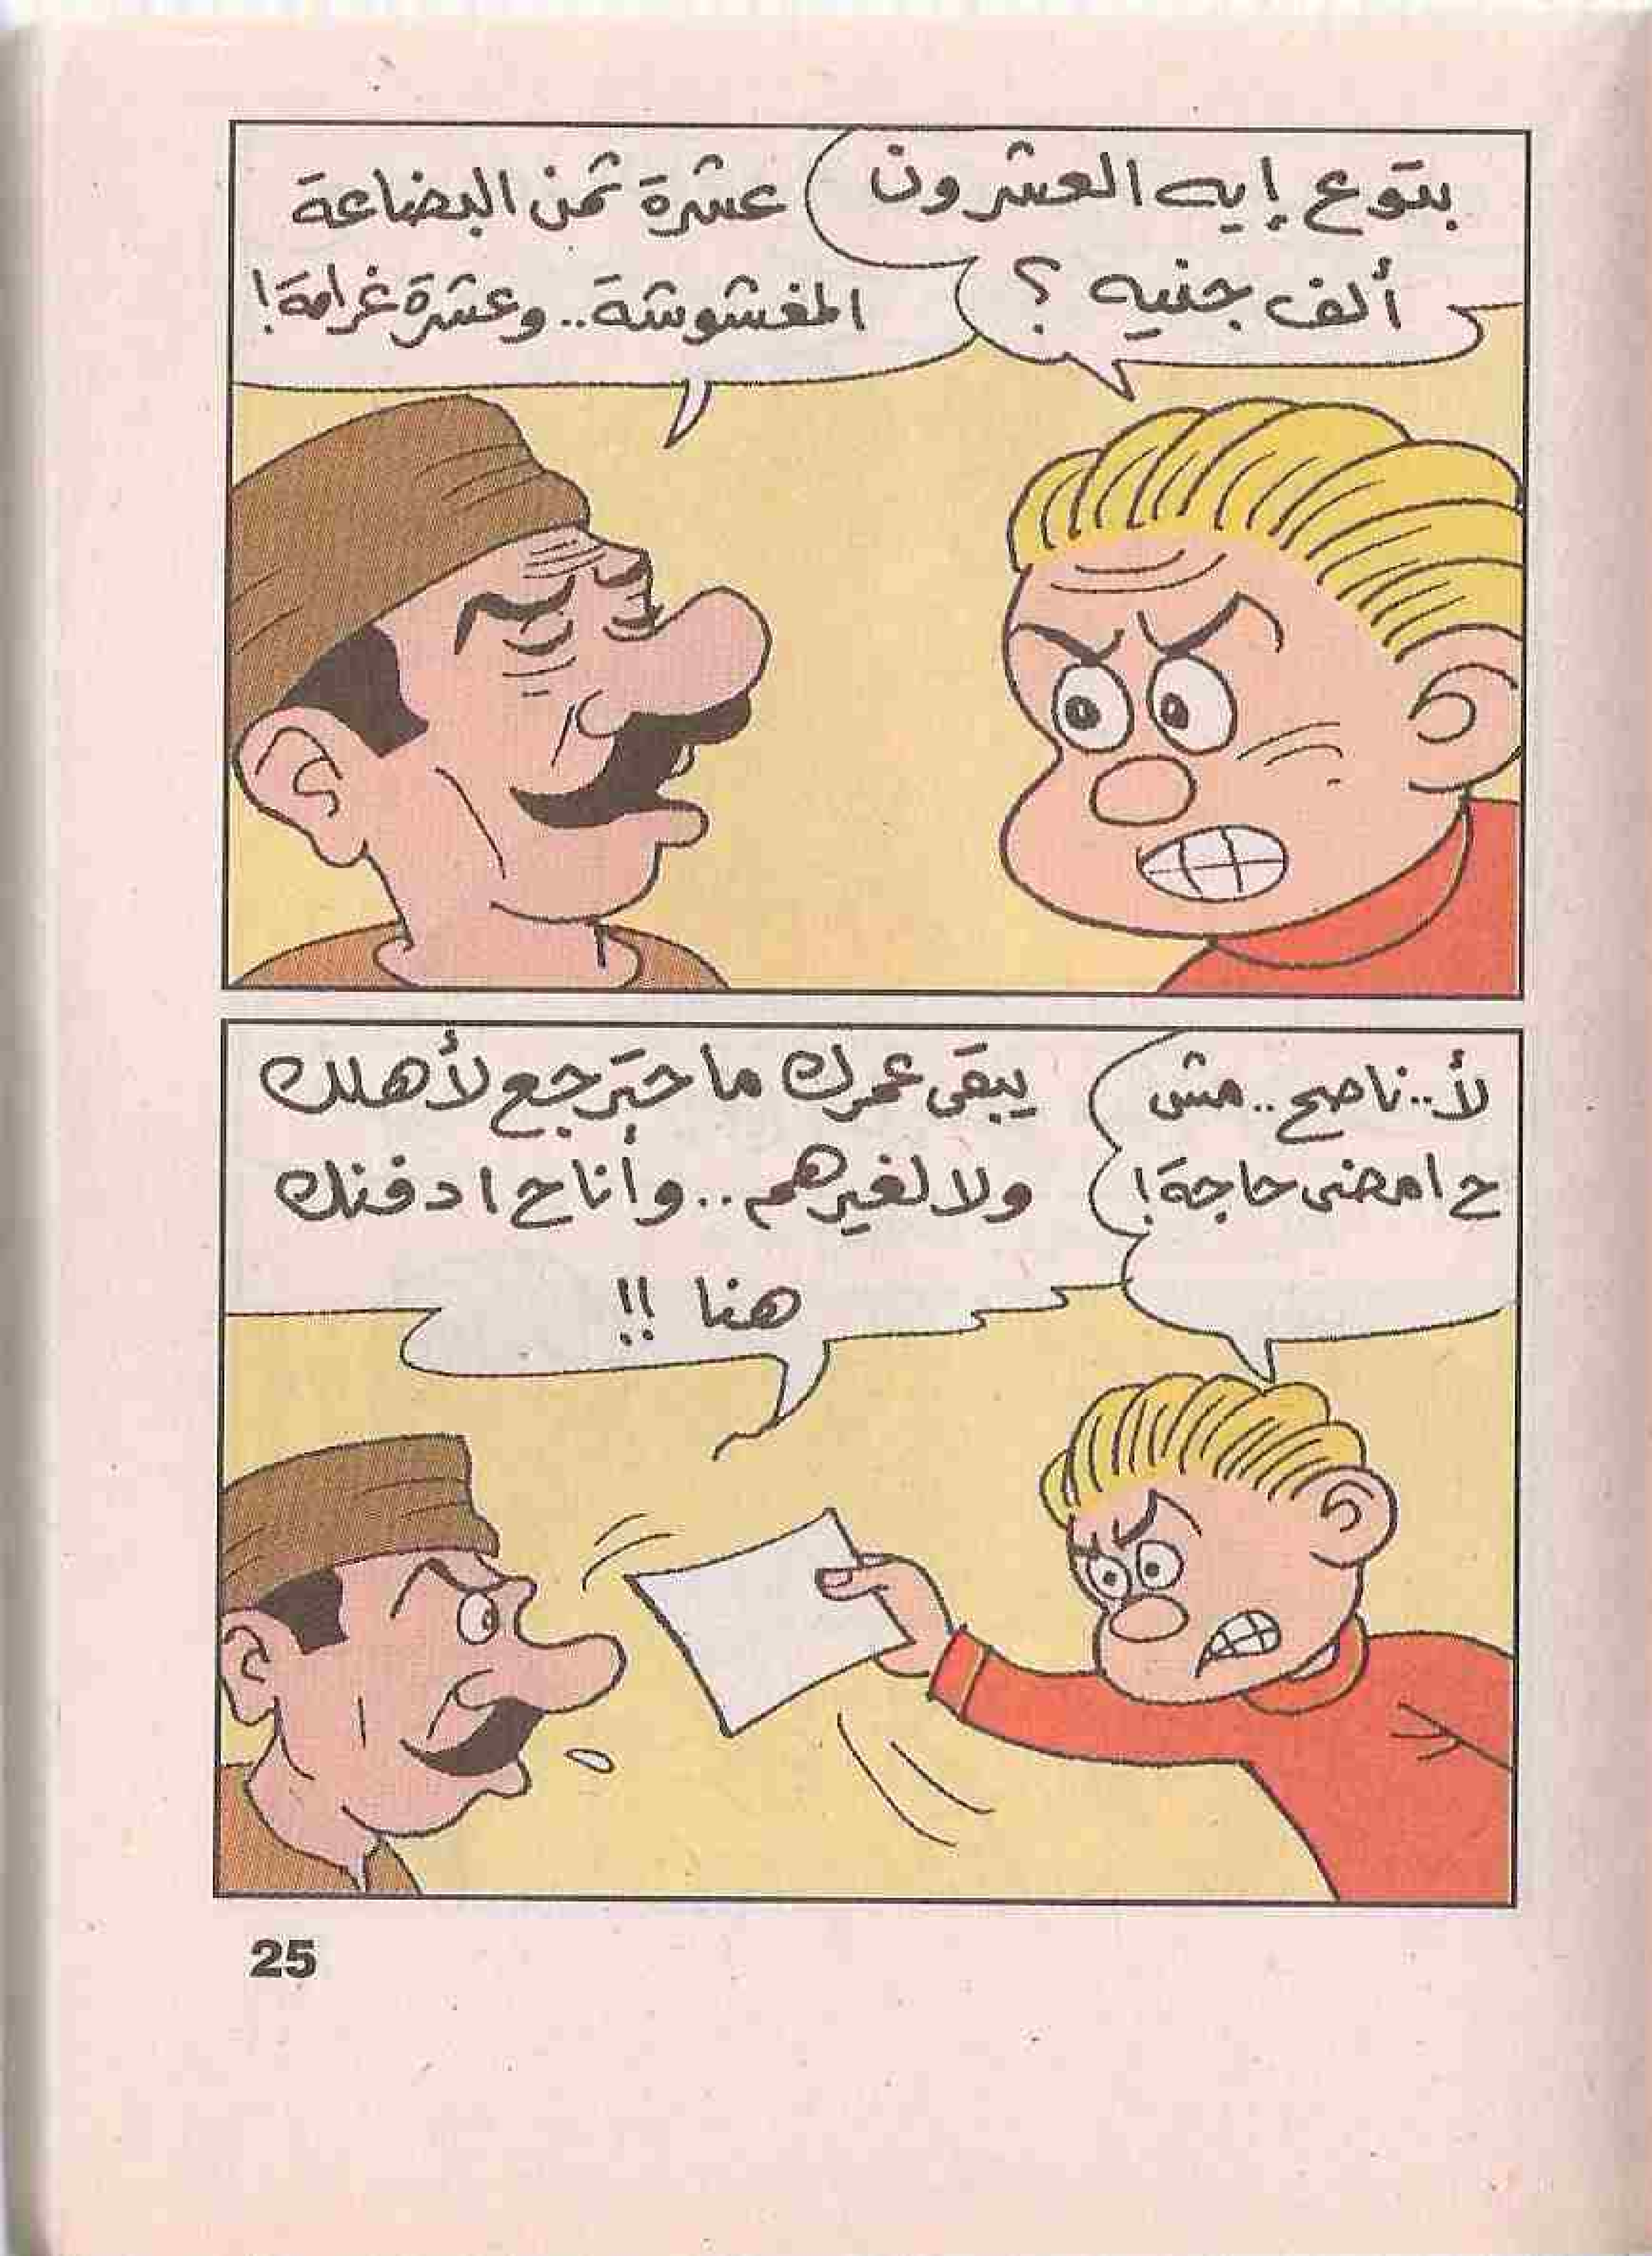 بتوع إيه العشرون
ألف جنيه ؟
عشرة ثمن البضاعة
المغشوشة.. وعشرة غرامة!
لأ.. ناصح.. مش
ح امضى حاجة!
يبقى عمرك ما حترجع لأهلك
ولا لغيرهم.. وأنا ح ادفنك
هنا !!
25